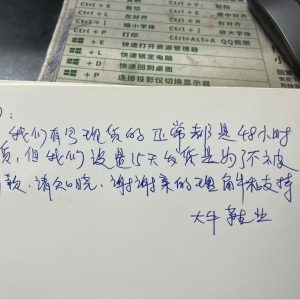 Ctrl+X
剪切
Ctrl+V
粘贴
Ctrl+L
左对齐
Ctrl+R
右对齐
Ctrl+[
缩小字体
Ctrl+]
放大字体
Ctrl+P
打印
Ctrl+ALT+A QQ截图
+E 快速打开资源管理器
+L 快速锁定电脑
+D 快速回到桌面
+P 连接投影仪切换显示器
我们有写现货的正常都是48小时
货,但我们设置15天发货是为了不被
款,请知晓,谢谢亲的理解和支持
大牛鞋业